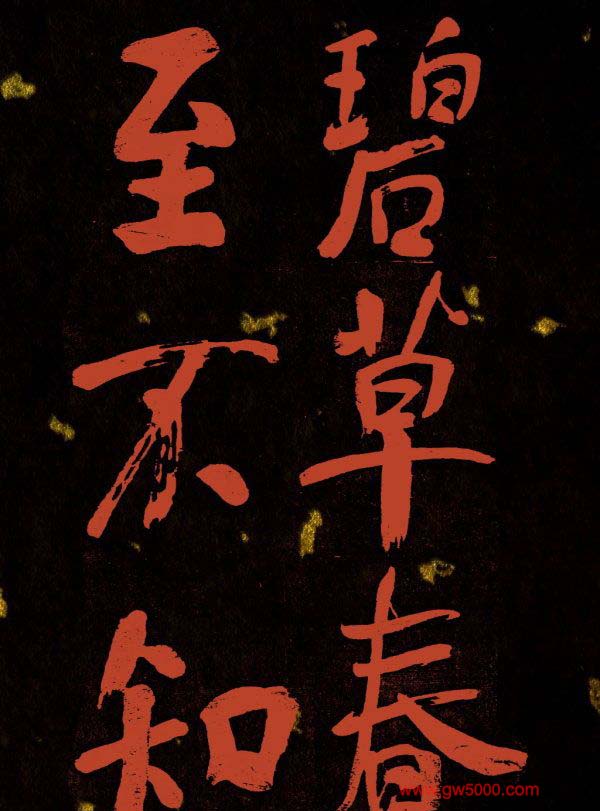 碧草春
至不知
www.gw5000.com